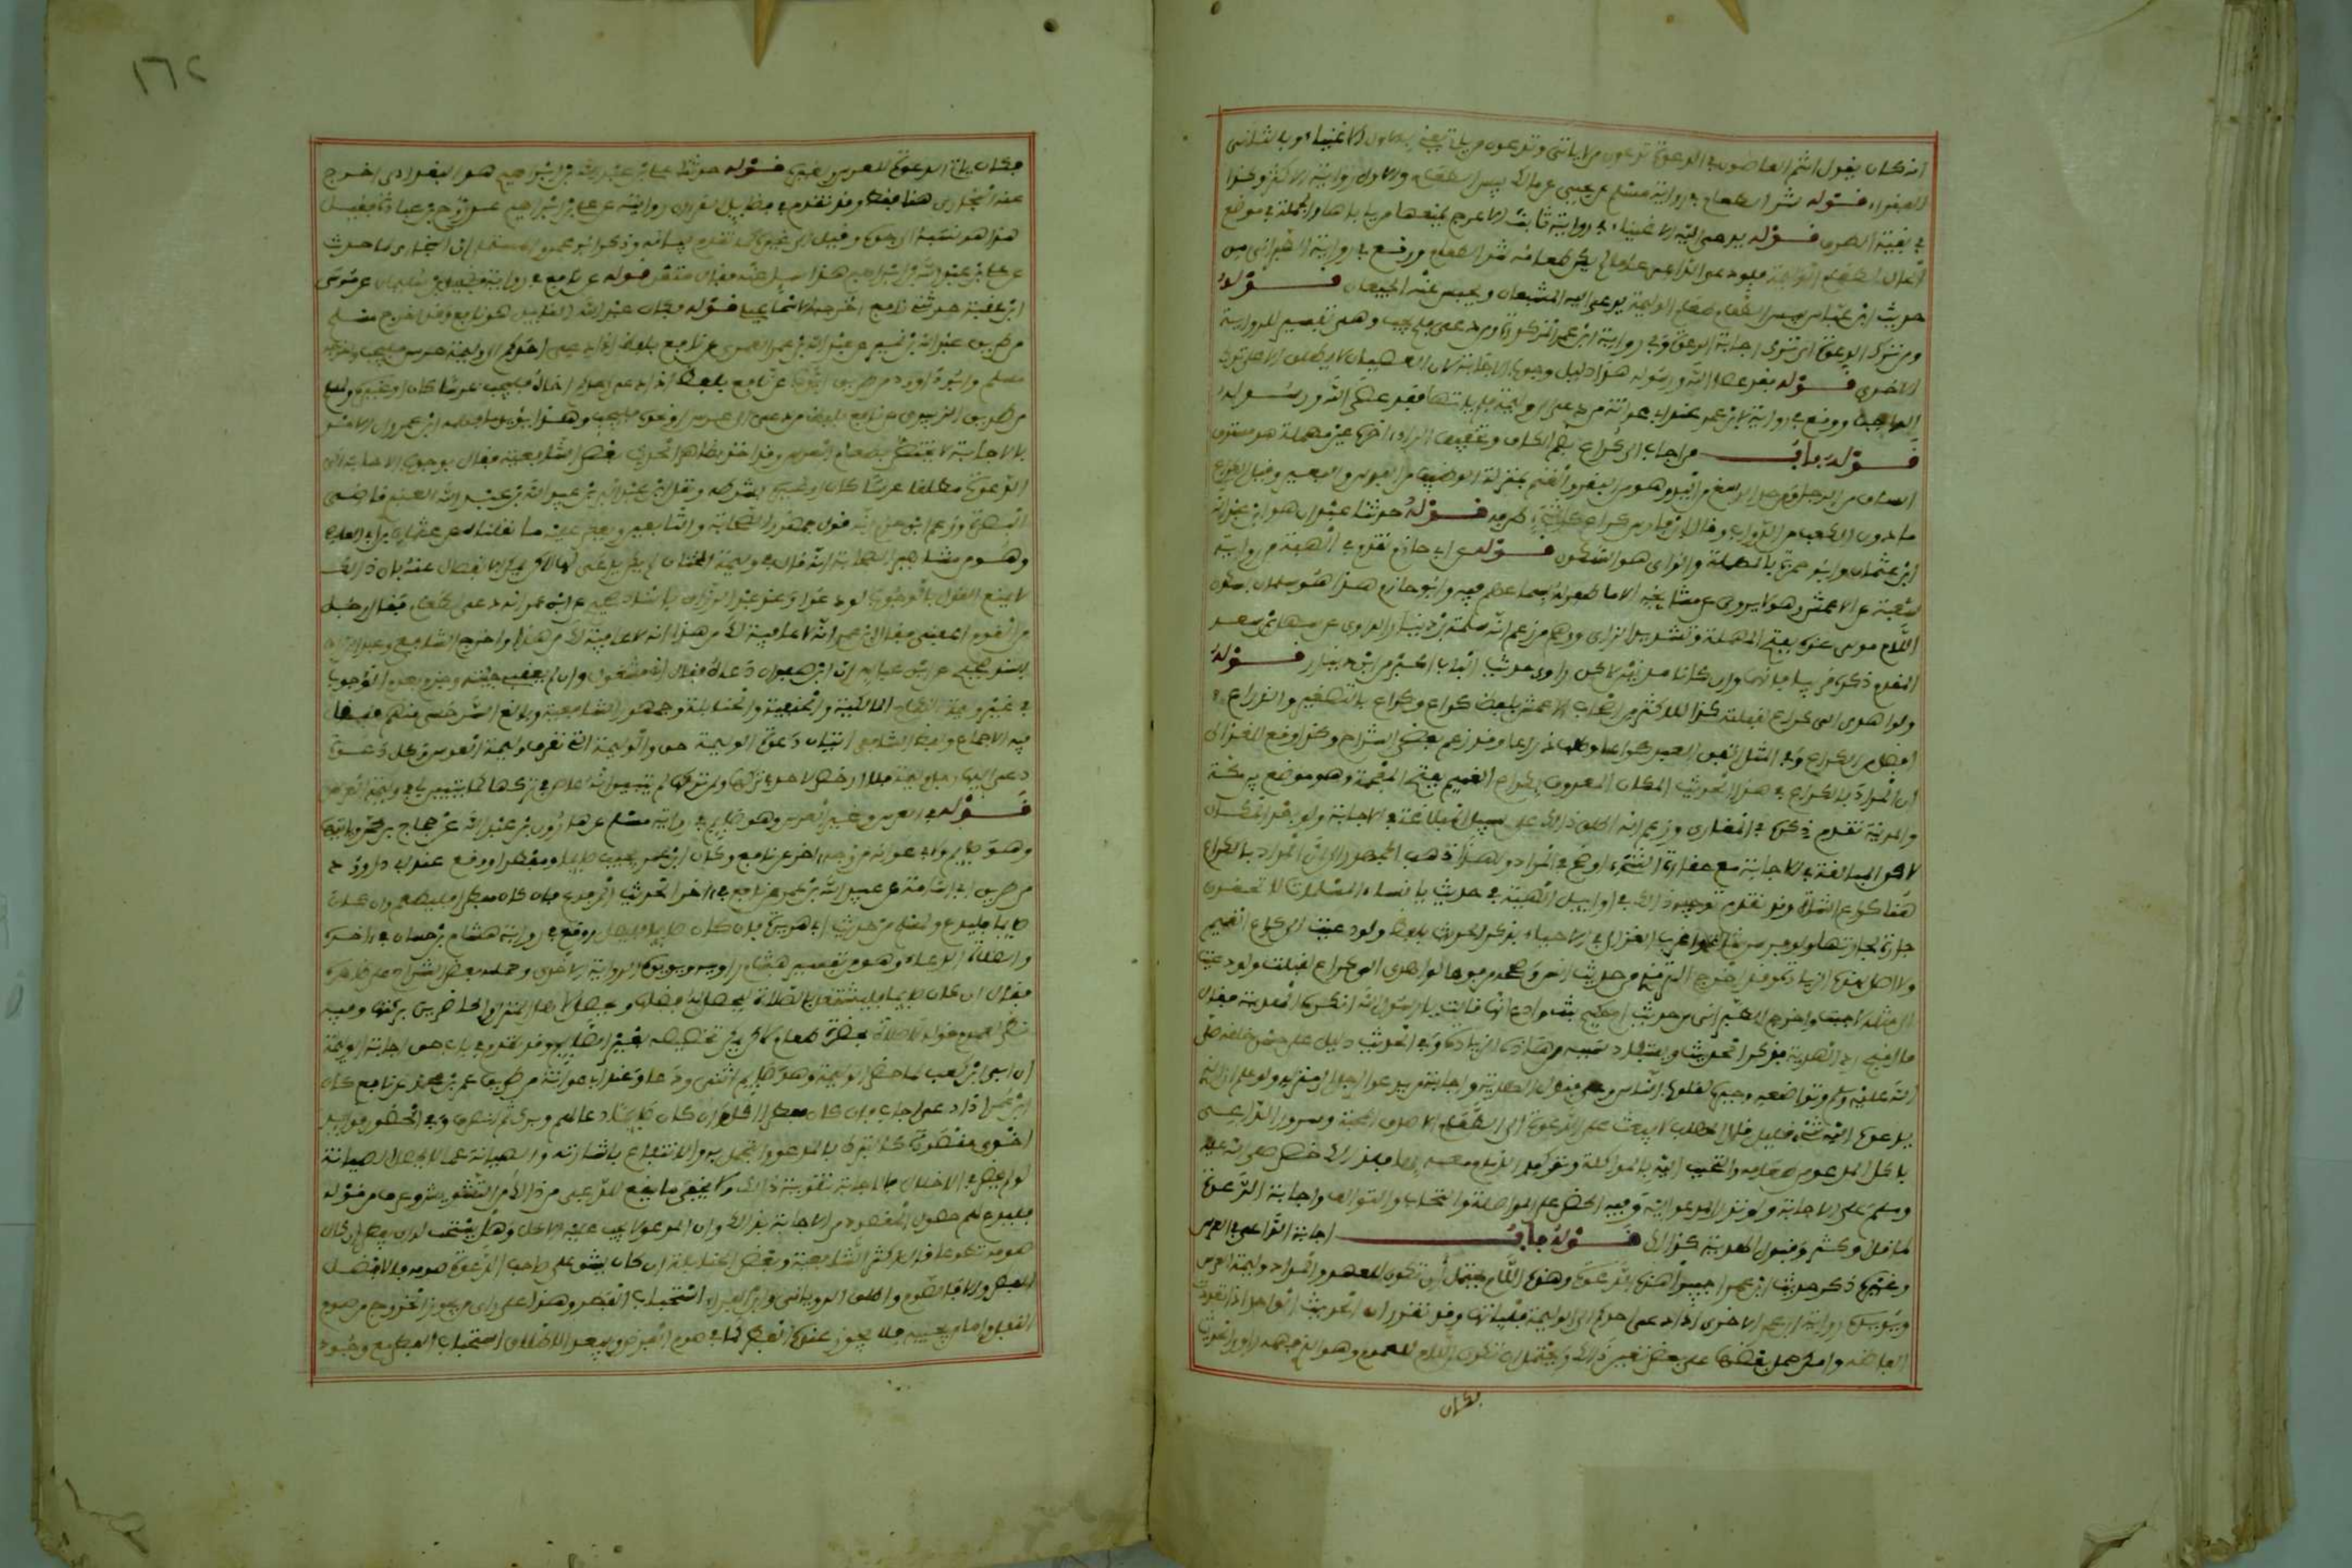 انه كان يقول انتم العاصون في الدعوة تدعون من لا ياتي وتدعون من ياتي يعني بالاول الاغنياء وبالثاني
الفقراء قوله شر الطعام في رواية مسلم عن يحيى عن مالك بيس الطعام والاول رواية الاكثر وكذا
في بقية الطرق قوله يدعى اليه الاغنياء في رواية ثابت الاعرج يمنعها من ياتيها والجملة في موضع
الحال لطعام الوليمة فلو دعى الداعي عاما لم يكن طعامه شر الطعام ووقع في رواية الطبراني من
حديث ابن عباس بيس الطعام طعام الوليمة يدعى اليه الشبعان ويحبس عنه الجيعان قوله
ومن ترك الدعوة اي ترك اجابة الدعوة وفي رواية ابن عمر المذكورة ومن دعى فلم يجب وهي تفسير للرواية
الاخرى قوله فقد عصى الله ورسوله هذا دليل وجوب الاجابة لان العصيان لا يطلق الا على ترك
الواجب ووقع في رواية لابن عمر عند ابي عوانة من دعى الى وليمة فلم ياتها فقد عصى الله ورسوله
قوله باب من اجاب الى كراع بضم الكاف وتخفيف الراء واخره عين مهملة هو مستدق
الساق من الرجل ومن حد الرسغ من اليد وهو من البقر والغنم بمنزلة الوظيف من الفرس والبعير وقيل الكراع
ما دون الكعب من الدواب وقال ابن فارس كراع كل شيء طرفه قوله حدثنا عبدان هو ابن عبد الله
ابن عثمان وابو حمزة بالمهملة والزاي هو السكري قوله عن ابي حازم تقدم في الهبة من رواية
شعبة عن الاعمش وهو لا يروي عن مشايخه الا ما ظهر له سماعهم فيه وابو حازم هذا هو سلمان بسكون
اللام مولى عزة بفتح المهملة وتشديد الزاي ووهم من زعم انه سلمة بن دينار الراوي عن سهل بن سعد
المقدم ذكره قريبا فانهما وان كانا مدنيين لاكن راوي حديث الباب اكبر من ابن دينار قوله
ولو اهدي الي كراع لقبلت كذا للاكثر من اصحاب الاعمش بلفظ كراع وكراع بالتصغير والذراع
افضل من الكراع وفي المثل انفق العبد كراعا وطلب ذراعا وقد زعم بعض الشراح وكذا وقع للغزالي
ان المراد بالكراع في هذا الحديث المكان المعروف بكراع الغميم بفتح المعجمة وهو موضع بين مكة
والمدينة تقدم ذكره في المغازي وزعم انه اطلق ذلك على سبيل المبالغة في الاجابة ولو بعد المكان
لاكن المبالغة في الاجابة مع حقارة الشيء اوضح في المراد ولهذا ذهب الجمهور الى ان المراد بالكراع
هنا كراع الشاة وقد تقدم توجيه ذلك في اوايل الهبة في حديث يا نساء المسلمات لا تحقرن
جارة لجارتها ولو فرسن شاة واغرب الغزالي في الاحياء بذكر الحديث بلفظ ولو دعيت الى كراع الغميم
ولا اصل لهذه الزيادة وقد اخرج الترمذي من حديث انس وصححه مرفوعا لو اهدي الي كراع لقبلت ولو دعيت
لمثله لاجبت واخرج الطبراني من حديث ام حكيم بنت وادع انها قالت يا رسول الله اتكره الهدية فقال
ما اقبح رد الهدية فذكر الحديث ويستفاد سببه من هذه الزيادة وفي الحديث دليل على حسن خلقه صلى
الله عليه وسلم وتواضعه وجبره لقلوب الناس وعلى قبول الهدية واجابة من يدعو الرجل الى منزله ولو علم ان الذي
يدعوه اليه شيء قليل قال المهلب لا يبعث على الدعوة الى الطعام الا صدق المحبة وسرور الداعي
باكل المدعو من طعامه والتحبب اليه بالمواكلة وتوكيد الذمام معه بها فلذلك حض صلى الله عليه
وسلم على الاجابة ولو نزر المدعو اليه وفيه الحض على المواصلة والتحاب والتوالف واجابة الدعوة
لما قل وكثر وقبول الهدية كذلك قوله باب اجابة الداعي في العرس
وغيره ذكر حديث ابن عمر اجيبوا هذه الدعوة وهذه اللام يحتمل ان تكون للعهد والمراد وليمة العرس
ويؤيده رواية ابن عمر الاخرى اذا دعي احدكم الى الوليمة فلياتها وقد تقرر ان الحديث الواحد اذا تعددت
الفاظه وامكن حمل بعضها على بعض تعين ذلك ويحتمل ان تكون اللام للعموم وهو الذي فهمه راوي الحديث
فكان
١٦٢
فكان ياتي الدعوة للعرس ولغيره قوله حدثنا علي بن عبد الله بن ابراهيم هو البغدادي اخرج
عنه البخاري هنا فقط وقد تقدم في فضايل القرءان روايته عن علي بن ابراهيم عن روح بن عبادة فقيل
هو هذا نسبه الى جده وقيل غيره كما تقدم بيانه وذكر ابو عمرو المستملي ان البخاري لما حدث
عن علي بن عبد الله بن ابراهيم هذا سيل عنه فقال متقن قوله عن نافع في رواية فضيل بن سليمان عن موسى
ابن عقبة حدثني نافع اخرجه الاسماعيلي قوله فكان عبد الله القايل هو نافع وقد اخرج مسلم
من طريق عبد الله بن نمير عن عبيد الله بن عمر العمري عن نافع بلفظ اذا دعي احدكم الى وليمة عرس فليجب واخرجه
مسلم وابو داوود من طريق ايوب عن نافع بلفظ اذا دعى احدكم اخاه فليجب عرسا كان او نحوه ولمسلم
من طريق الزبيدي عن نافع بلفظ من دعي الى عرس او نحوه فليجب وهذا يؤيد ما فهمه ابن عمر وان الامر
بالاجابة لا يختص بطعام العرس وقد اخذ بظاهر الحديث بعض الشافعية فقال بوجوب الاجابة الى
الدعوة مطلقا عرسا كان او غيره بشرطه ونقله ابن عبد البر عن عبيد الله بن الحسن العنبري قاضي
البصرة وزعم ابن حزم انه قول جمهور الصحابة والتابعين ويعكر عليه ما نقلناه عن عثمان بن ابي العاص
وهو من مشاهير الصحابة انه قال في وليمة الختان لم يكن يدعى لها لاكن يمكن الانفصال عنه بان ذلك
لا يمنع القول بالوجوب لو دعوا وعند عبد الرزاق باسناد صحيح عن ابن عمر انه دعى الى طعام فقال رجل
من القوم اعفني فقال ابن عمر انه لا عافية لك من هذا فقم واخرج الشافعي وعبد الرزاق
بسند صحيح عن ابن عباس ان ابن صفوان دعاه فقال اني مشغول وان لم تعفني جيته وجزم بعدم الوجوب
في غير وليمة النكاح المالكية والحنفية والحنابلة وجمهور الشافعية وبالغ السرخسي منهم فنقل
فيه الاجماع ولفظ الشافعي اتيان دعوة الوليمة حق والوليمة التي تعرف وليمة العرس وكل دعوة
دعى اليها رجل وليمة فلا ارخص لاحد في تركها ولو تركها لم يتبين انه عاص في تركها كما تبين لي في وليمة العرس
قوله في العرس وغير العرس وهو صايم في رواية مسلم عن هارون بن عبد الله عن حجاج بن محمد وياتيها
وهو صايم ولابي عوانة من وجه ءاخر عن نافع وكان ابن عمر يجيب صايما ومفطرا ووقع عند ابي داوود
من طريق ابي اسامة عن عبيد الله بن عمر عن نافع في ءاخر الحديث المرفوع فان كان مفطرا فليطعم وان كان
صايما فليدع ولمسلم من حديث ابي هريرة فان كان صايما فليصل ووقع في رواية هشام بن حسان في ءاخره
والصلاة الدعاء وهو من تفسير هشام راويه ويؤيده الرواية الاخرى وحمله بعض الشراح على ظاهره
فقال ان كان صايما فليشتغل بالصلاة ليحصل له فضلها ويحصل لاهل المنزل والحاضرين بركتها وفيه
نظر لعموم قوله لا صلاة بحضرة طعام لاكن يمكن تخصيصه بغير الصايم وقد تقدم في باب حق اجابة الوليمة
ان ابي بن كعب لما حضر الوليمة وهو صايم اثنى ودعا وعند ابي عوانة من طريق عمر بن محمد عن نافع كان
ابن عمر اذا دعي اجاب فان كان مفطرا اكل وان كان صايما دعا لهم وبرك ثم انصرف وفي الحضور فوايد
اخرى مقصودة كالتبرك بالمدعو والتجمل به والانتفاع باشارته والصيانة عما لا يحصل له الصيانة
لو لم يحضر وفي الاخلال بالاجابة تفويت ذلك ولا يخفى ما يقع للداعي من ذلك من التشويش وعرف من قوله
فليدع لهم حصول المقصود من الاجابة بذلك وان المدعو لا يجب عليه الاكل وهل يستحب له ان يفطر ان كان
صومه تطوعا قال اكثر الشافعية وبعض الحنابلة ان كان يشق على صاحب الدعوة صومه فالافضل
الفطر والا فالصوم واطلق الروياني وابن الفراء استحباب الفطر وهذا على راي من يجوز الخروج من صوم
النفل واما من يوجبه فلا يجوز عنده الفطر كما في صوم الفرض ويبعد اطلاق استحباب الفطر مع وجود